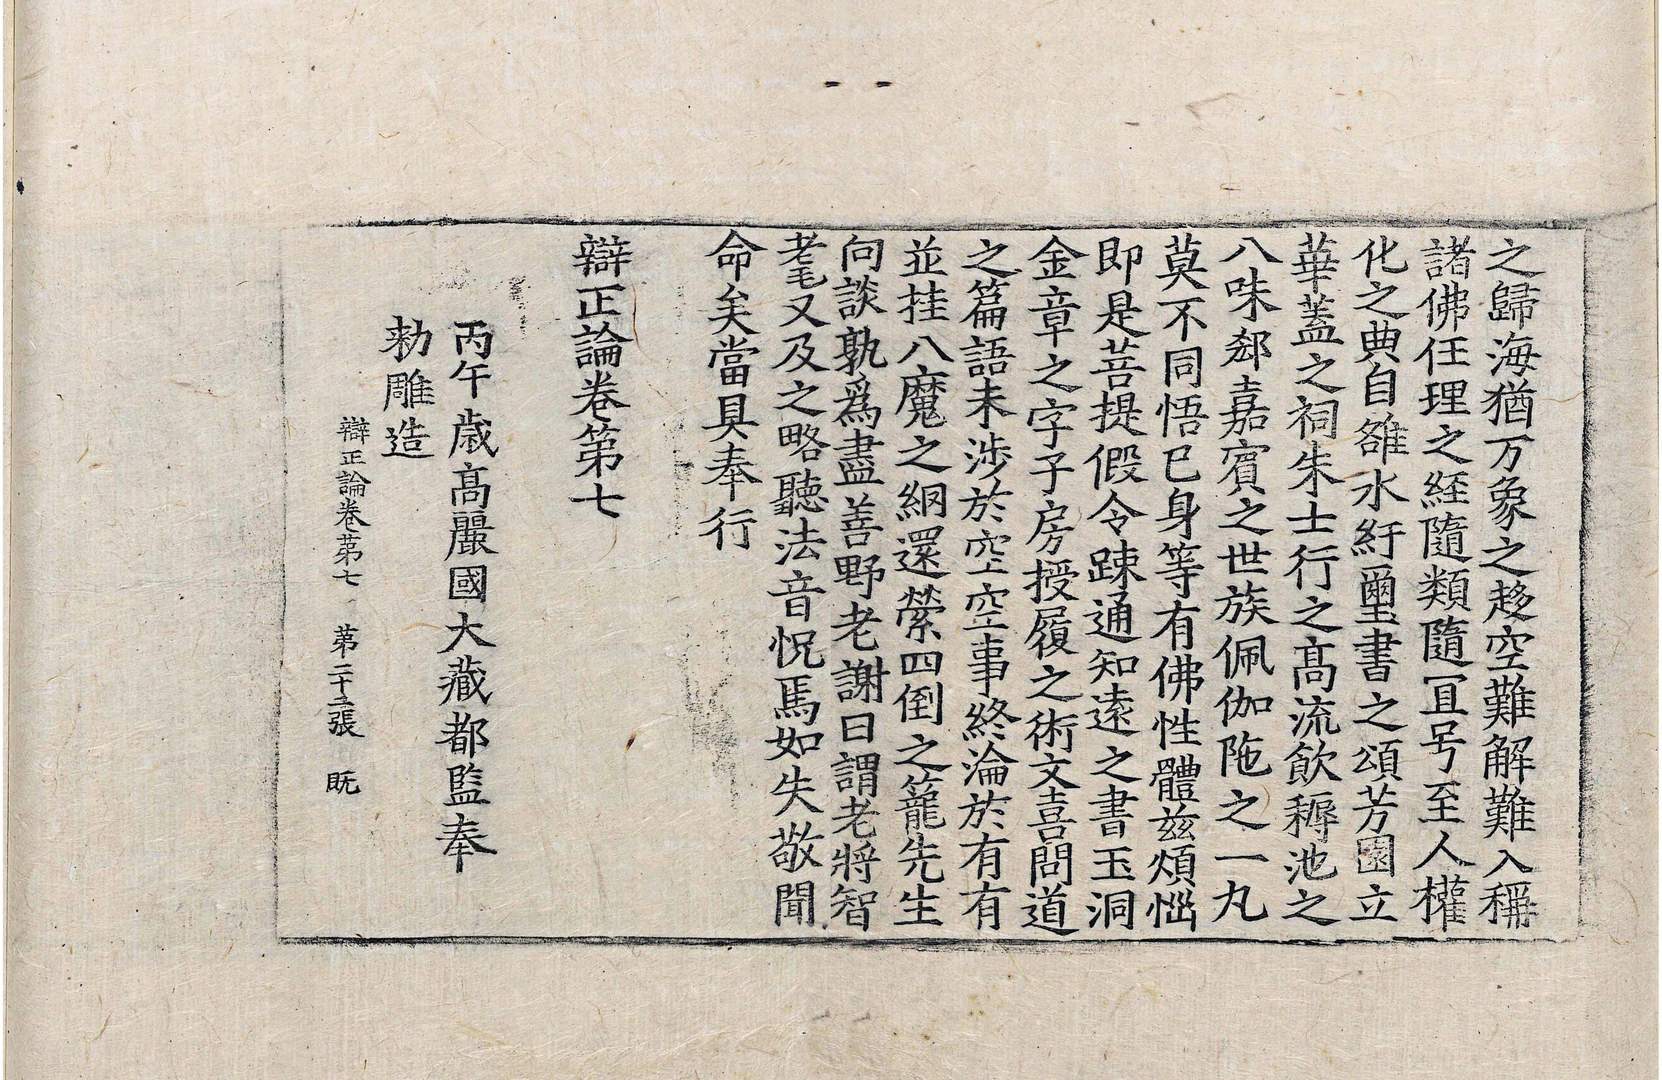 之歸海猶万象之趍空難解難入稱
諸佛任理之經隨類隨冝号至人權
化之典自雒水紆璽書之頌芳園立
華蓋之祠朱士行之髙流飲稱池之
八味郄嘉賓之世族佩伽陁之一丸
莫不同悟巳身等有佛性體兹煩惱
即是菩提假令踈通知遠之書玉洞
金章之字子房授履之術文喜問道
之篇語未涉於空空事終淪於有有
並挂八魔之網還縈四倒之籠先生
向談孰爲盡善野老謝曰謂老將智
耄又及之略聽法音怳焉如失敬聞
命矣當具奉行
辯正論卷第七
丙午歳髙麗國大藏都監奉
勅雕造
辯正論卷苐七 苐二十五張 旣